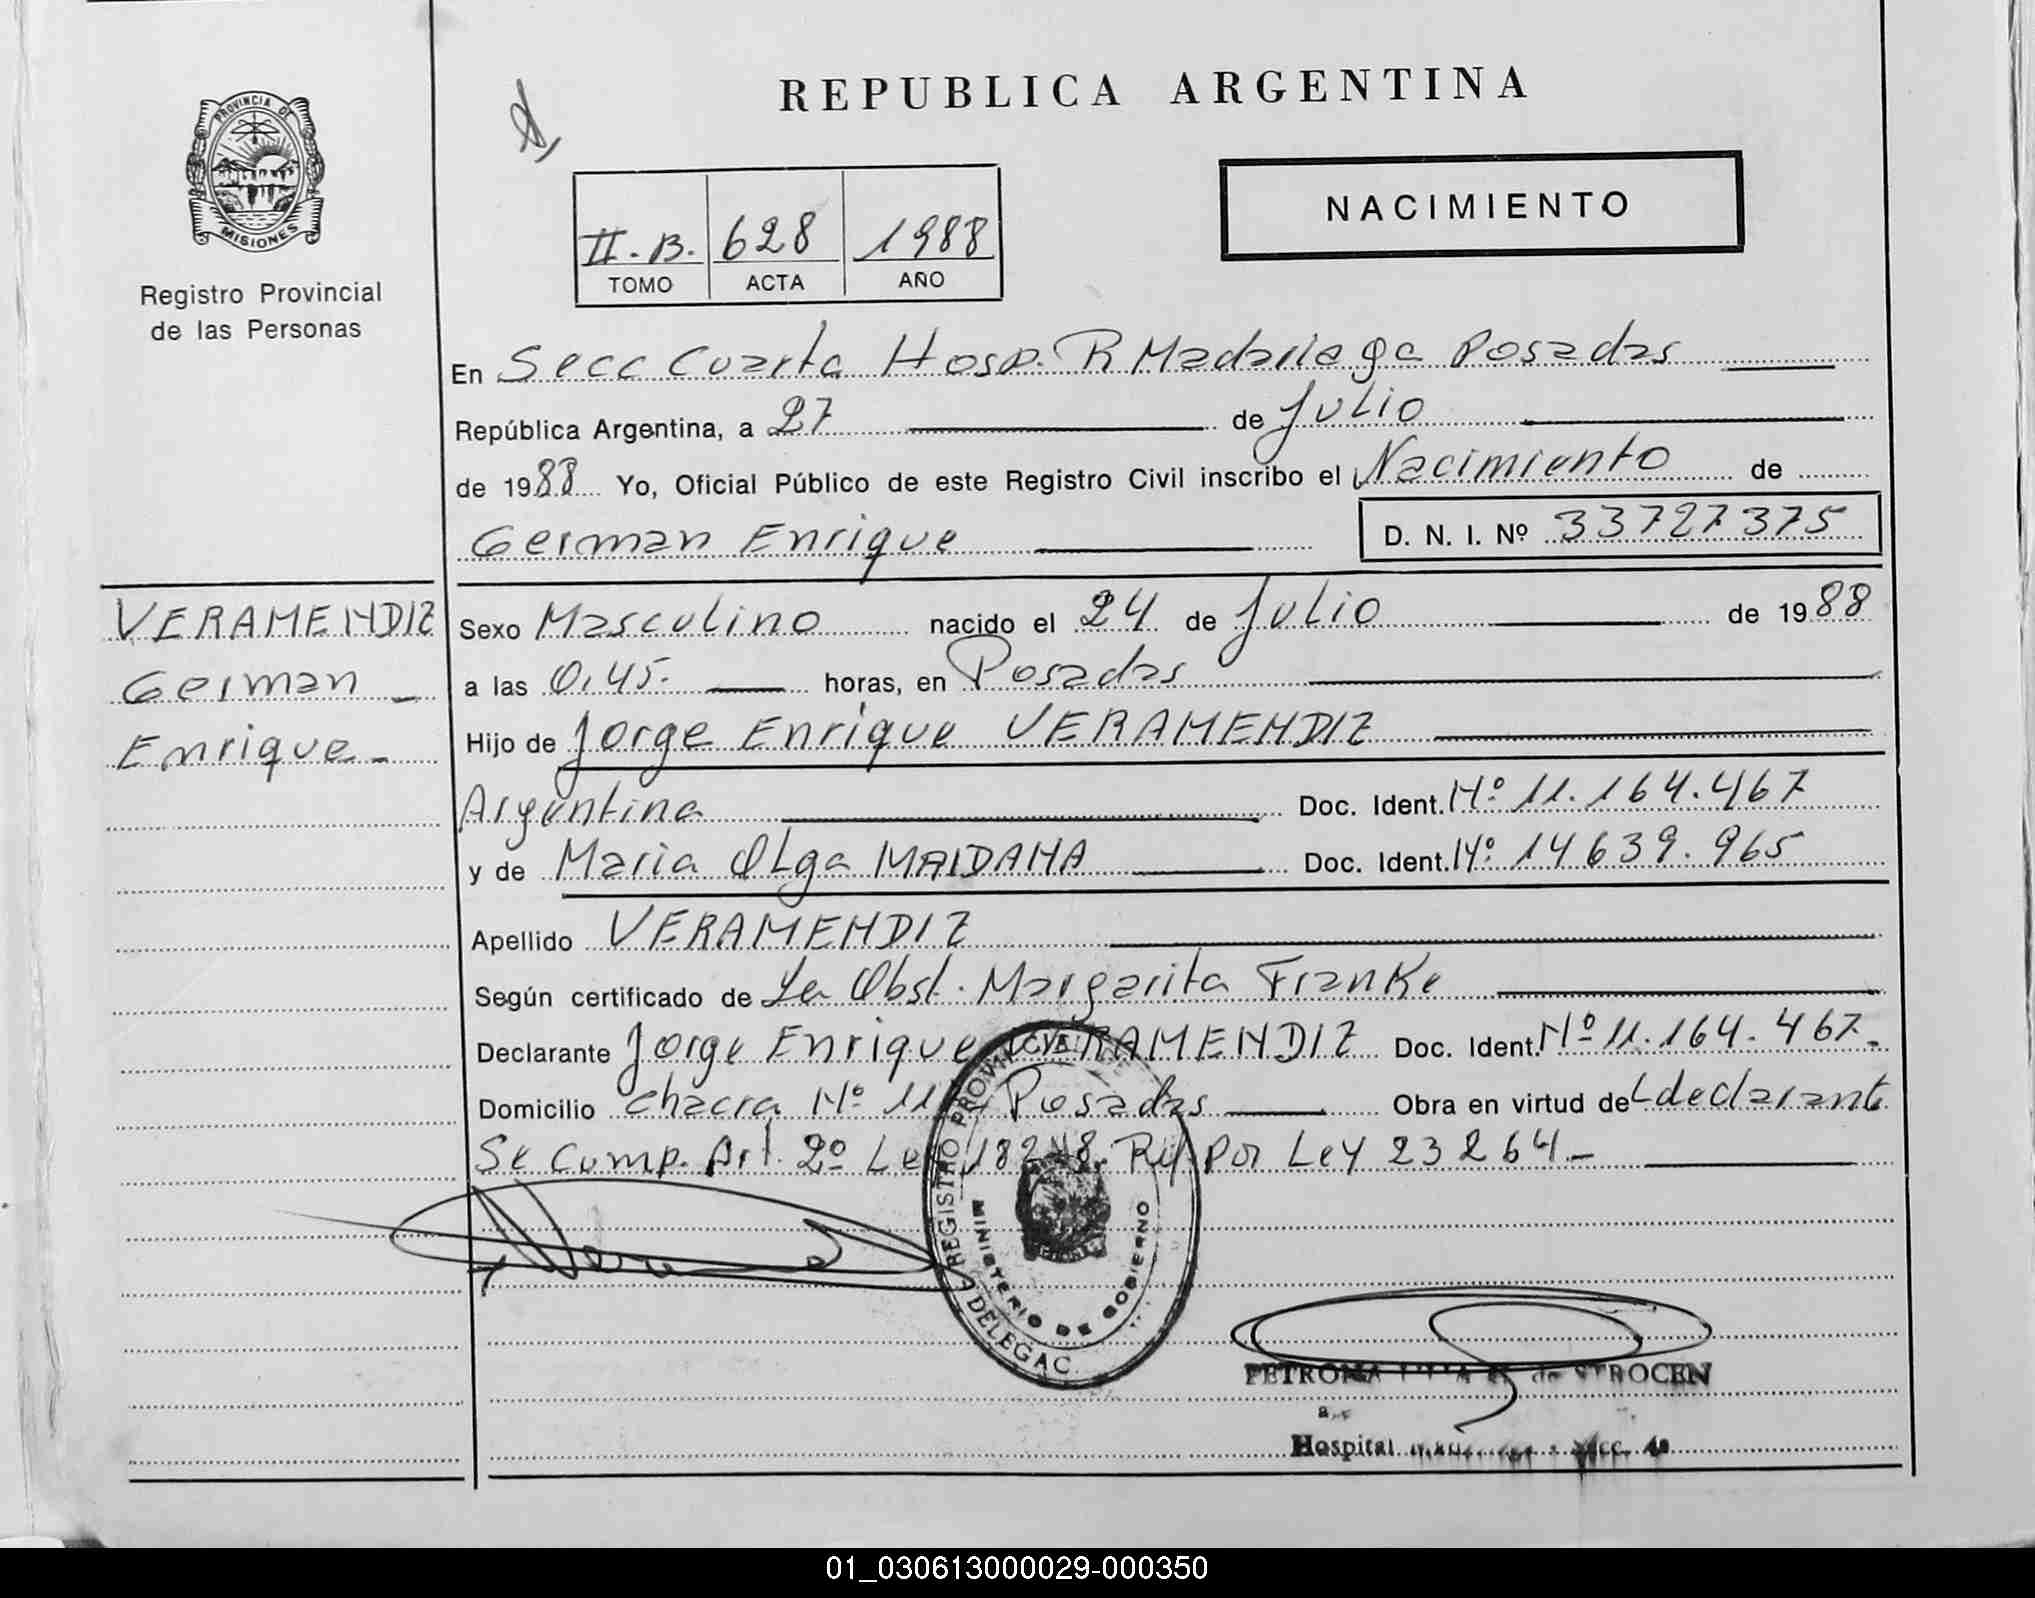 REPUBLICA ARGENTINA
PROVINCIA DE
MISIONES
Registro Provincial
de las Personas
NACIMIENTO
II.B. 628 1988
TOMO ACTA AÑO
En Secc Cuarta Hosp. R Madariaga Posadas
República Argentina, a 27 de Julio
de 1988 Yo, Oficial Público de este Registro Civil inscribo el Nacimiento de
German Enrique D. N. I. Nº 33727375
VERAMENDIZ
German
Enrique
Sexo Masculino nacido el 24 de Julio de 1988
a las 0,45. horas, en Posadas
Hijo de Jorge Enrique VERAMENDIZ
Argentina Doc. Ident. Nº 11.164.467
y de Maria Olga MAIDANA Doc. Ident. Nº 14639.965
Apellido VERAMENDIZ
Según certificado de La Obst. Margarita Franke
Declarante Jorge Enrique VERAMENDIZ Doc. Ident. Nº 11.164.467.
Domicilio chacra Nº Posadas Obra en virtud de declarante
Se Comp. Art. 2º Ley 18248. Por Ley 23264
REGISTRO PROVINCIAL
MINISTERIO DE GOBIERNO
DELEGAC
PETRONA de STROCEN
Hospital
01_030613000029-000350